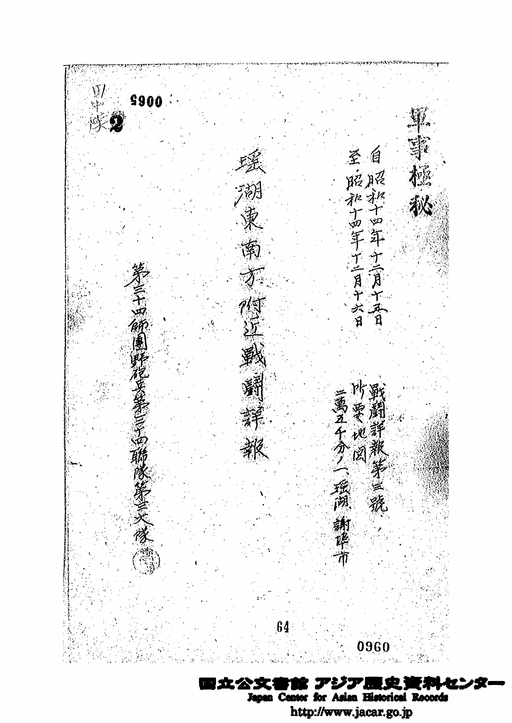 軍事極秘
自昭和十四年十二月十五日
至昭和十四年十二月十六日
戦闘詳報第三號
所要地図
二萬五千分ノ一、瑶湖、謝埠市
瑶湖東南方附近戦闘詳報
第三十四師團野砲兵第三十四聯隊第三大隊
田中隊
2
0065
64
0960
国立公文書館 アジア歴史資料センター
Japan Center for Asian Historical Records
http://www.jacar.go.jp